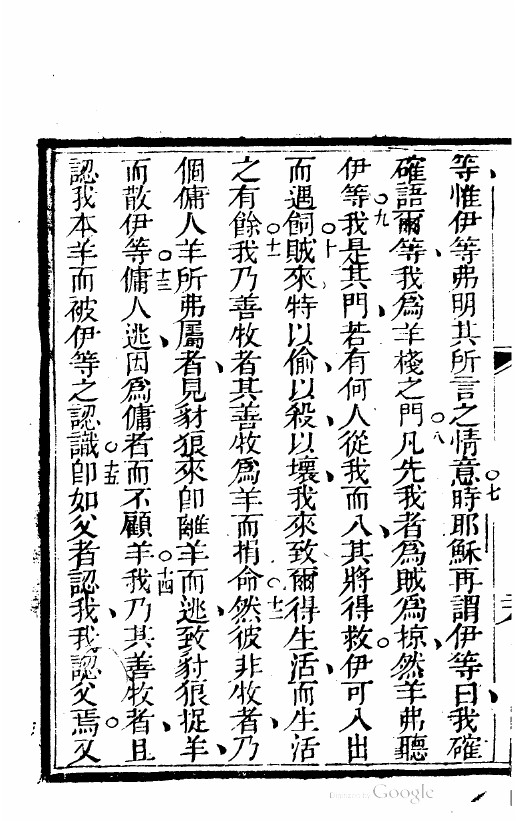 等惟伊等弗明其所言之情意○七時耶穌再謂伊等曰我確
確語爾等我爲羊棧之門○八凡先我者爲賊爲掠然羊弗聽
伊等○九我是其門若有何人從我而入其將得救伊可入出
而遇飼○十賊來特以偷以殺以壞我來致爾得生活而生活
之有餘○十一我乃善牧者其善牧爲羊而捐命○十二然彼非牧者乃
個傭人羊所弗屬者見豺狼來卽離羊而逃致豺狼捉羊
而散伊等○十三傭人逃因爲傭者而不顧羊○十四我乃其善牧者且
認我本羊而被伊等之認識○十五卽如父者認我我認父焉父
Digitized by Google